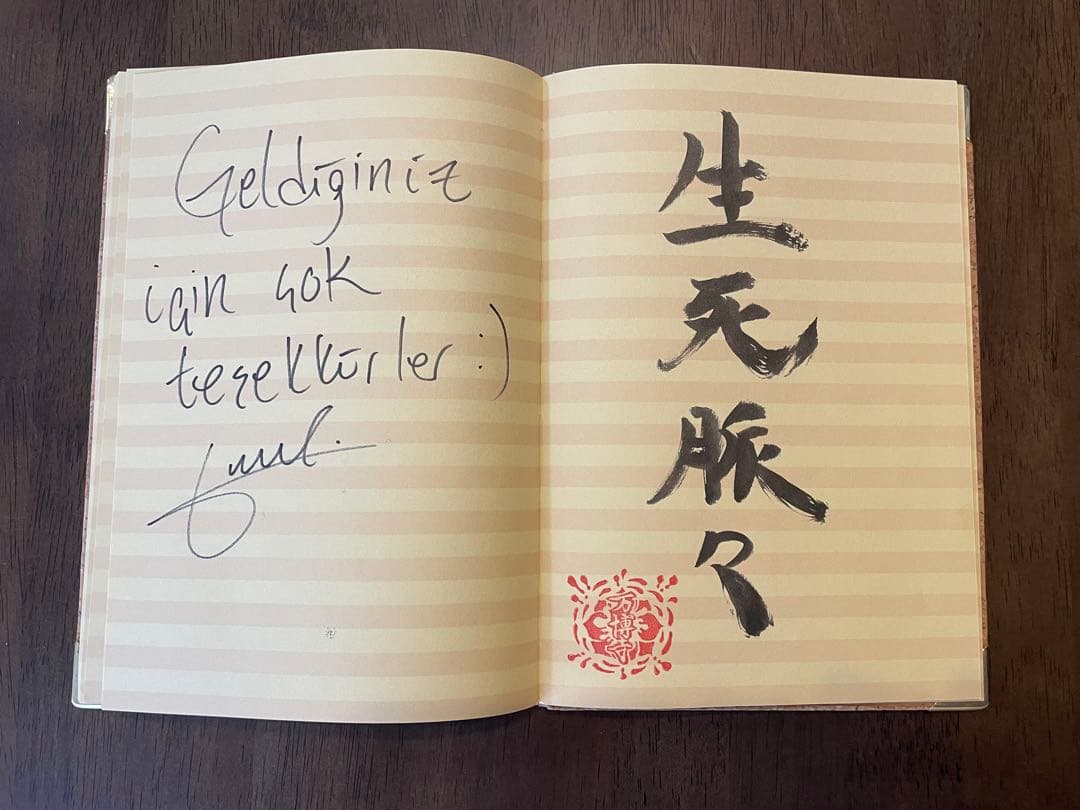 Geldiğiniz
için çok
teşekkürler :)
生死脈々